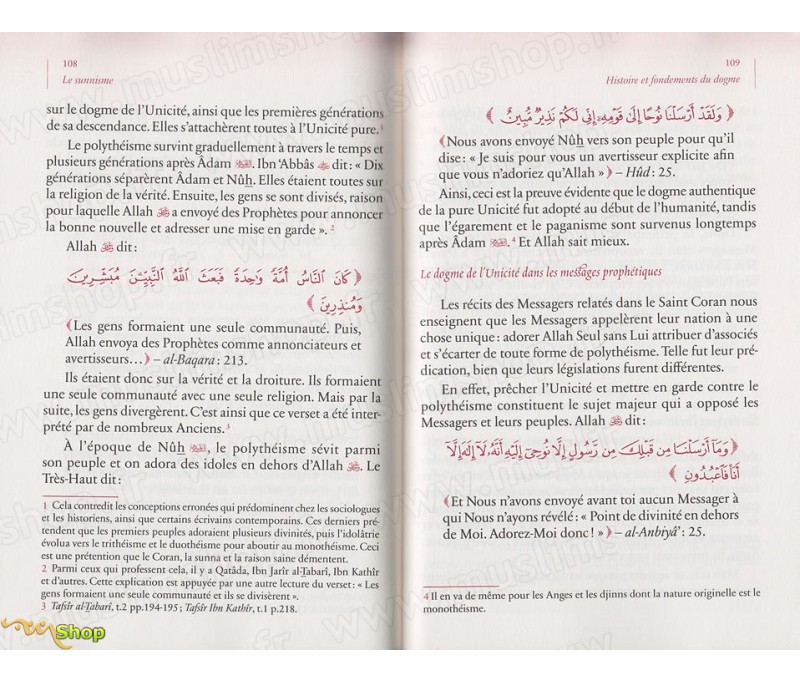 108
Le sunnisme
sur le dogme de l'Unicité, ainsi que les premières générations
de sa descendance. Elles s'attachèrent toutes à l'Unicité pure.¹
Le polythéisme survint graduellement à travers le temps et
plusieurs générations après Âdam. Ibn 'Abbâs dit : « Dix
générations séparèrent Âdam et Nûh. Elles étaient toutes sur
la religion de la vérité. Ensuite, les gens se sont divisés, raison
pour laquelle Allah ﷻ a envoyé des Prophètes pour annoncer
la bonne nouvelle et adresser une mise en garde ». ²
Allah ﷻ dit :
﴿ كَانَ ٱلنَّاسُ أُمَّةً وَٰحِدَةً فَبَعَثَ ٱللَّهُ ٱلنَّبِيِّـۧنَ مُبَشِّرِينَ
وَمُنذِرِينَ ﴾
﴾Les gens formaient une seule communauté. Puis,
Allah envoya des Prophètes comme annonciateurs et
avertisseurs…﴿ – al-Baqara : 213.
Ils étaient donc sur la vérité et la droiture. Ils formaient
une seule communauté avec une seule religion. Mais par la
suite, les gens divergèrent. C'est ainsi que ce verset a été inter-
prété par de nombreux Anciens.³
À l'époque de Nûh, le polythéisme sévit parmi
son peuple et on adora des idoles en dehors d'Allah ﷻ. Le
Très-Haut dit :
1 Cela contredit les conceptions erronées qui prédominent chez les sociologues
et les historiens, ainsi que certains écrivains contemporains. Ces derniers pré-
tendent que les premiers peuples adoraient plusieurs divinités, puis l'idolâtrie
évolua vers le trithéisme et le duothéisme pour aboutir au monothéisme. Ceci
est une prétention que le Coran, la sunna et la raison saine démentent.
2 Parmi ceux qui professent cela, il y a Qatâda, Ibn Jarîr al-Tabarî, Ibn Kathîr
et d'autres. Cette explication est appuyée par une autre lecture du verset : « Les
gens formaient une seule communauté et ils se divisèrent ».
3 Tafsîr al-Tabarî, t.2 pp.194-195 ; Tafsîr Ibn Kathîr, t.1 p.218.
109
Histoire et fondements du dogme
﴿ وَلَقَدْ أَرْسَلْنَا نُوحًا إِلَىٰ قَوْمِهِۦٓ إِنِّي لَكُمْ نَذِيرٌ مُّبِينٌ ﴾
﴾Nous avons envoyé Nûh vers son peuple pour qu'il
dise : « Je suis pour vous un avertisseur explicite afin
que vous n'adoriez qu'Allah »﴿ – Hûd : 25.
Ainsi, ceci est la preuve évidente que le dogme authentique
de la pure Unicité fut adopté au début de l'humanité, tandis
que l'égarement et le paganisme sont survenus longtemps
après Âdam.⁴ Et Allah sait mieux.
Le dogme de l'Unicité dans les messages prophétiques
Les récits des Messagers relatés dans le Saint Coran nous
enseignent que les Messagers appelèrent leur nation à une
chose unique : adorer Allah Seul sans Lui attribuer d'associés
et s'écarter de toute forme de polythéisme. Telle fut leur pré-
dication, bien que leurs législations furent différentes.
En effet, prêcher l'Unicité et mettre en garde contre le
polythéisme constituent le sujet majeur qui a opposé les
Messagers et leurs peuples. Allah ﷻ dit :
﴿ وَمَآ أَرْسَلْنَا مِن قَبْلِكَ مِن رَّسُولٍ إِلَّا نُوحِيٓ إِلَيْهِ أَنَّهُۥ لَآ إِلَٰهَ إِلَّآ
أَنَا۠ فَٱعْبُدُونِ ﴾
﴾Et Nous n'avons envoyé avant toi aucun Messager à
qui Nous n'ayons révélé : « Point de divinité en dehors
de Moi. Adorez-Moi donc ! »﴿ – al-Anbiyâ' : 25.
4 Il en va de même pour les Anges et les djinns dont la nature originelle est le
monothéisme.
Shop
www.muslimshop.fr